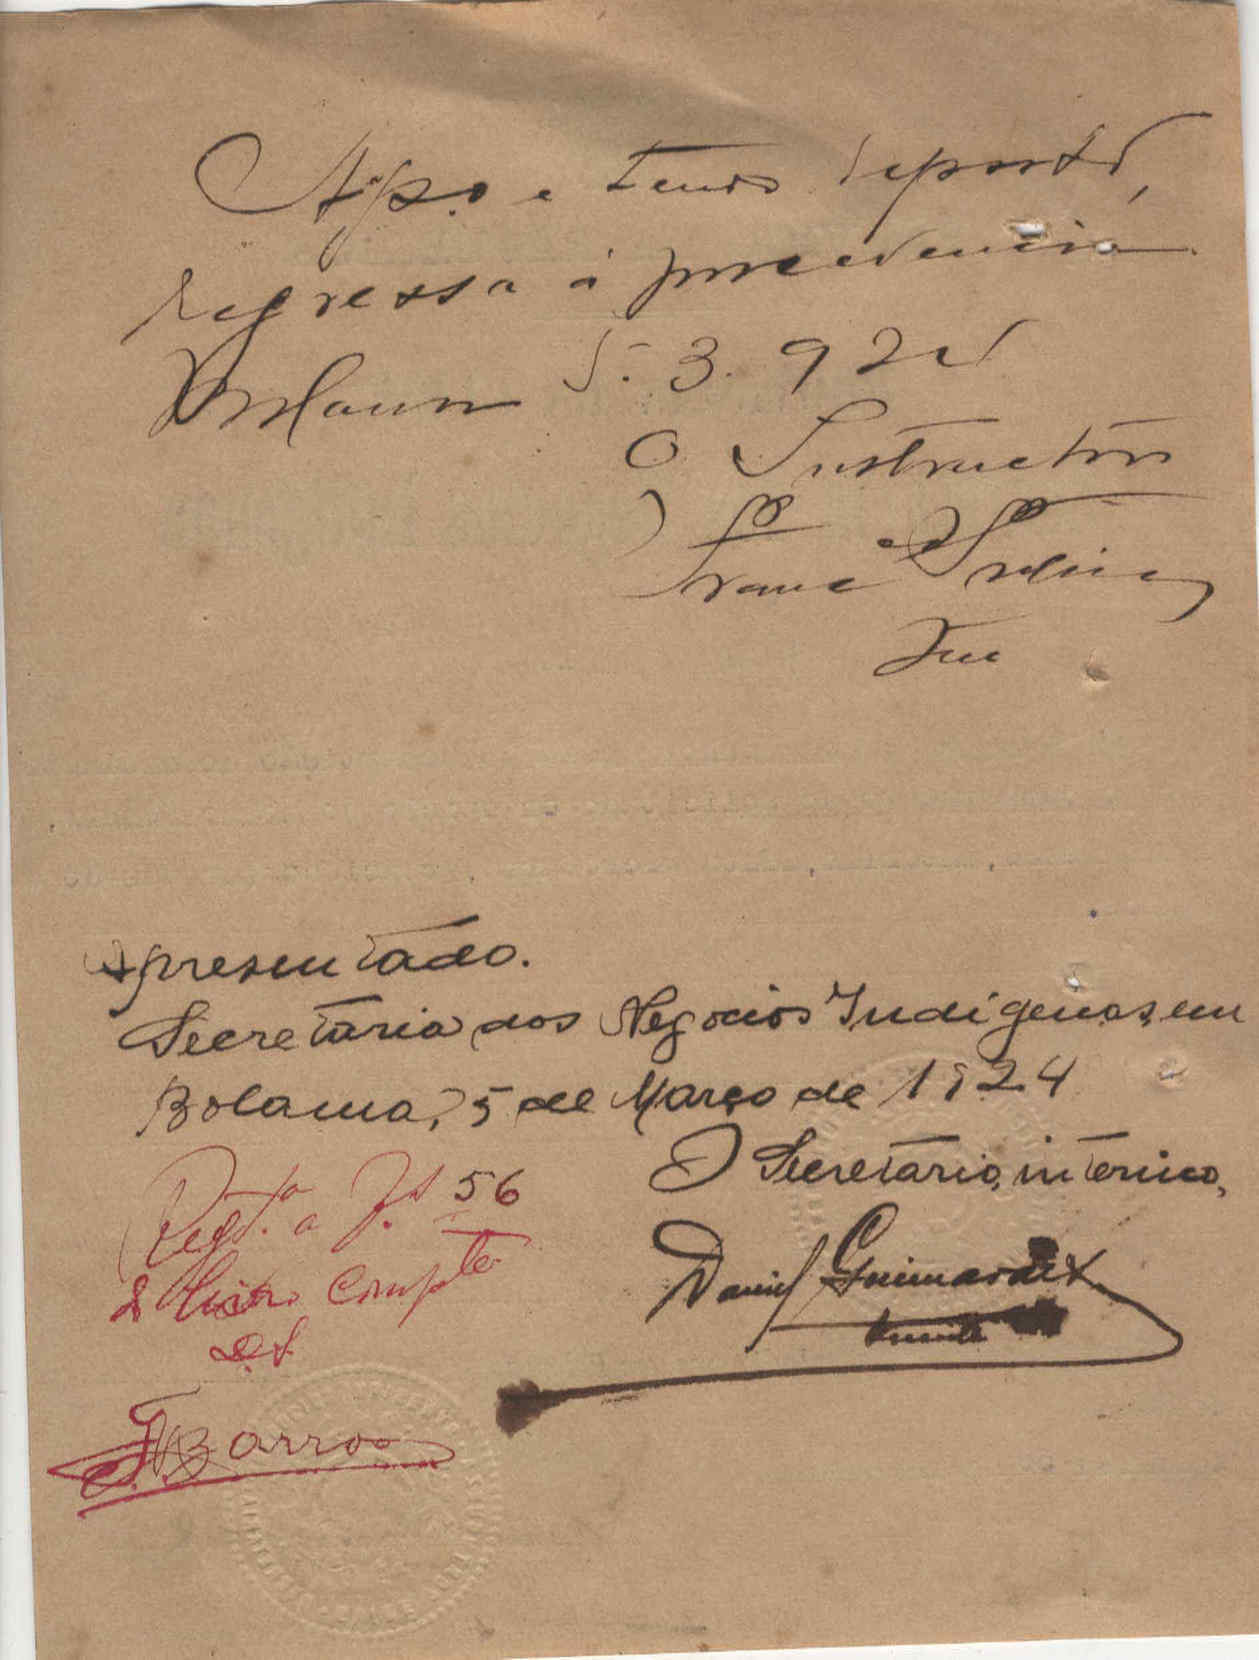 Ap.o e tendo deposto,
regressa á procedencia
Bolama 5.3.924
O Instructor
Apresentado.
Secretaria dos Negocios Indigenas, em
Bolama, 5 de Março de 1924
O Secretario, interino,
Daniel Guimarães
Reg.to a fs 56
do Livro Compte
J Barros